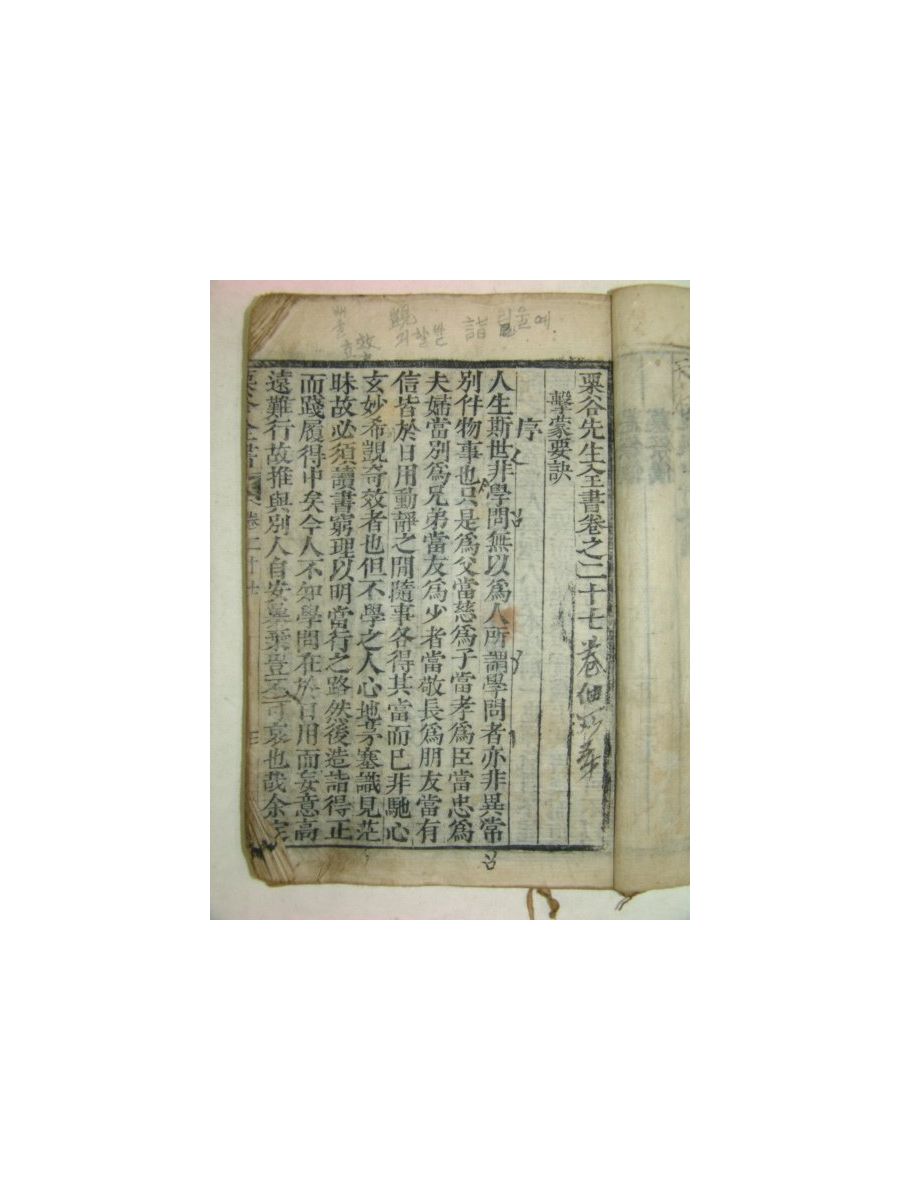 栗谷先生全書卷之二十七
擊蒙要訣
序
人生斯世非學問無以爲人所謂學問者亦非異常
別件物事也只是爲父當慈爲子當孝爲臣當忠爲
夫婦當別爲兄弟當友爲少者當敬長爲朋友當有
信皆於日用動靜之間隨事各得其當而已非馳心
玄妙希覬奇效者也但不學之人心地茅塞識見茫
昧故必須讀書窮理以明當行之路然後造詣得正
而踐履得中矣今人不知學問在於日用而妄意高
遠難行故推與別人自安暴棄豈不可哀也哉余定
栗谷全書 卷二十七
覬
詣